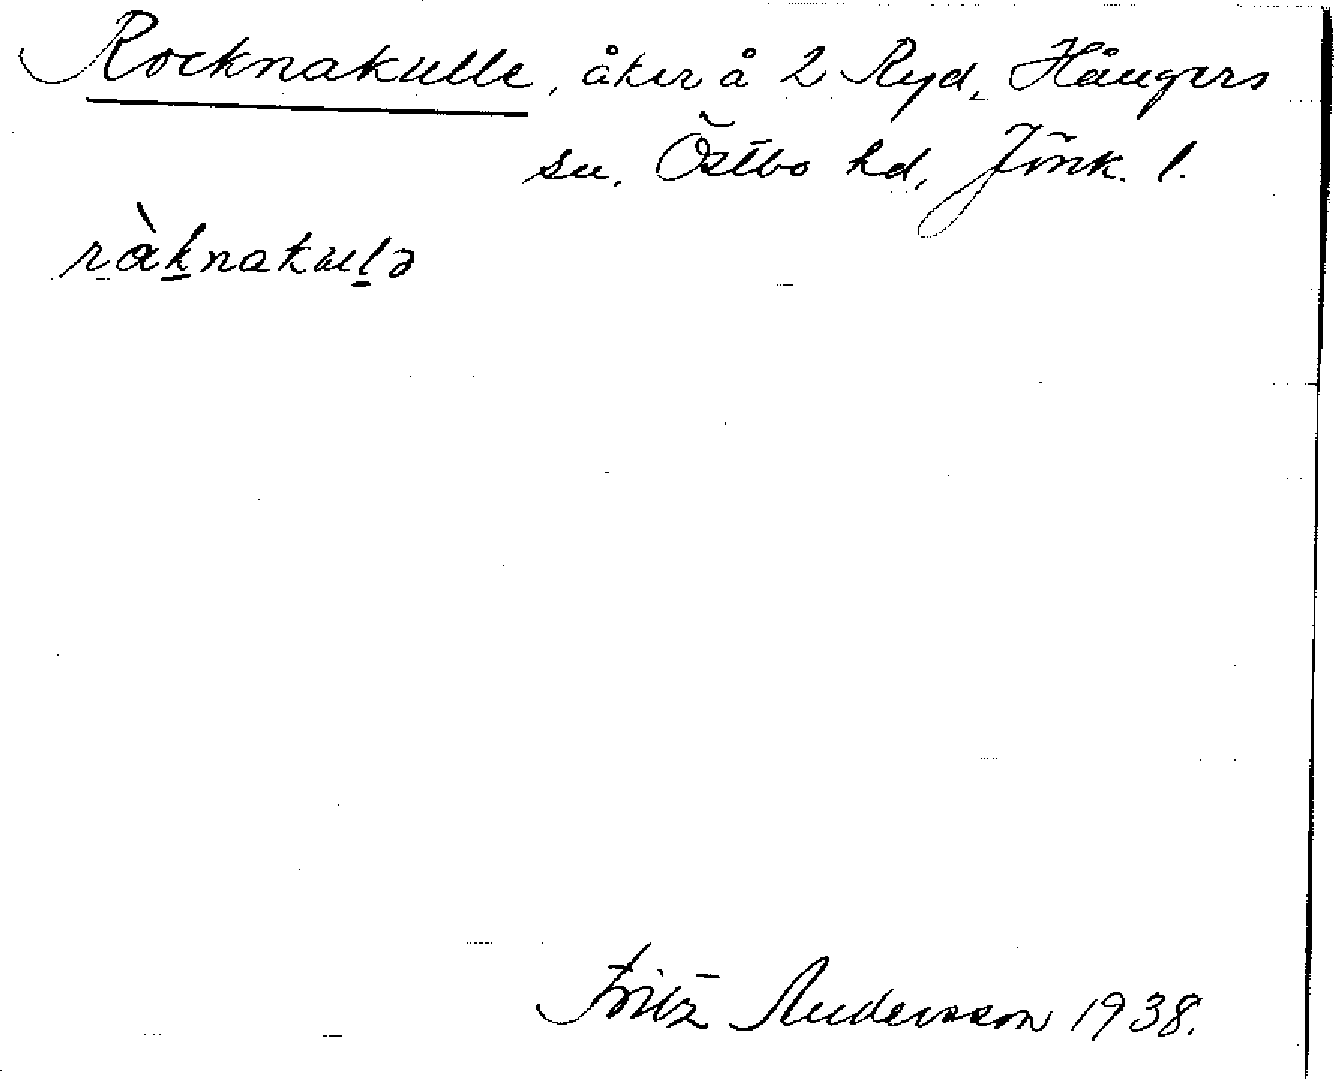 Rocknakulle, åker å 2 Ryd, Hångers
sn. Östbo hd, Jönk. l.
ràk̲nakul̲ə
Fritz Andersson 1938.